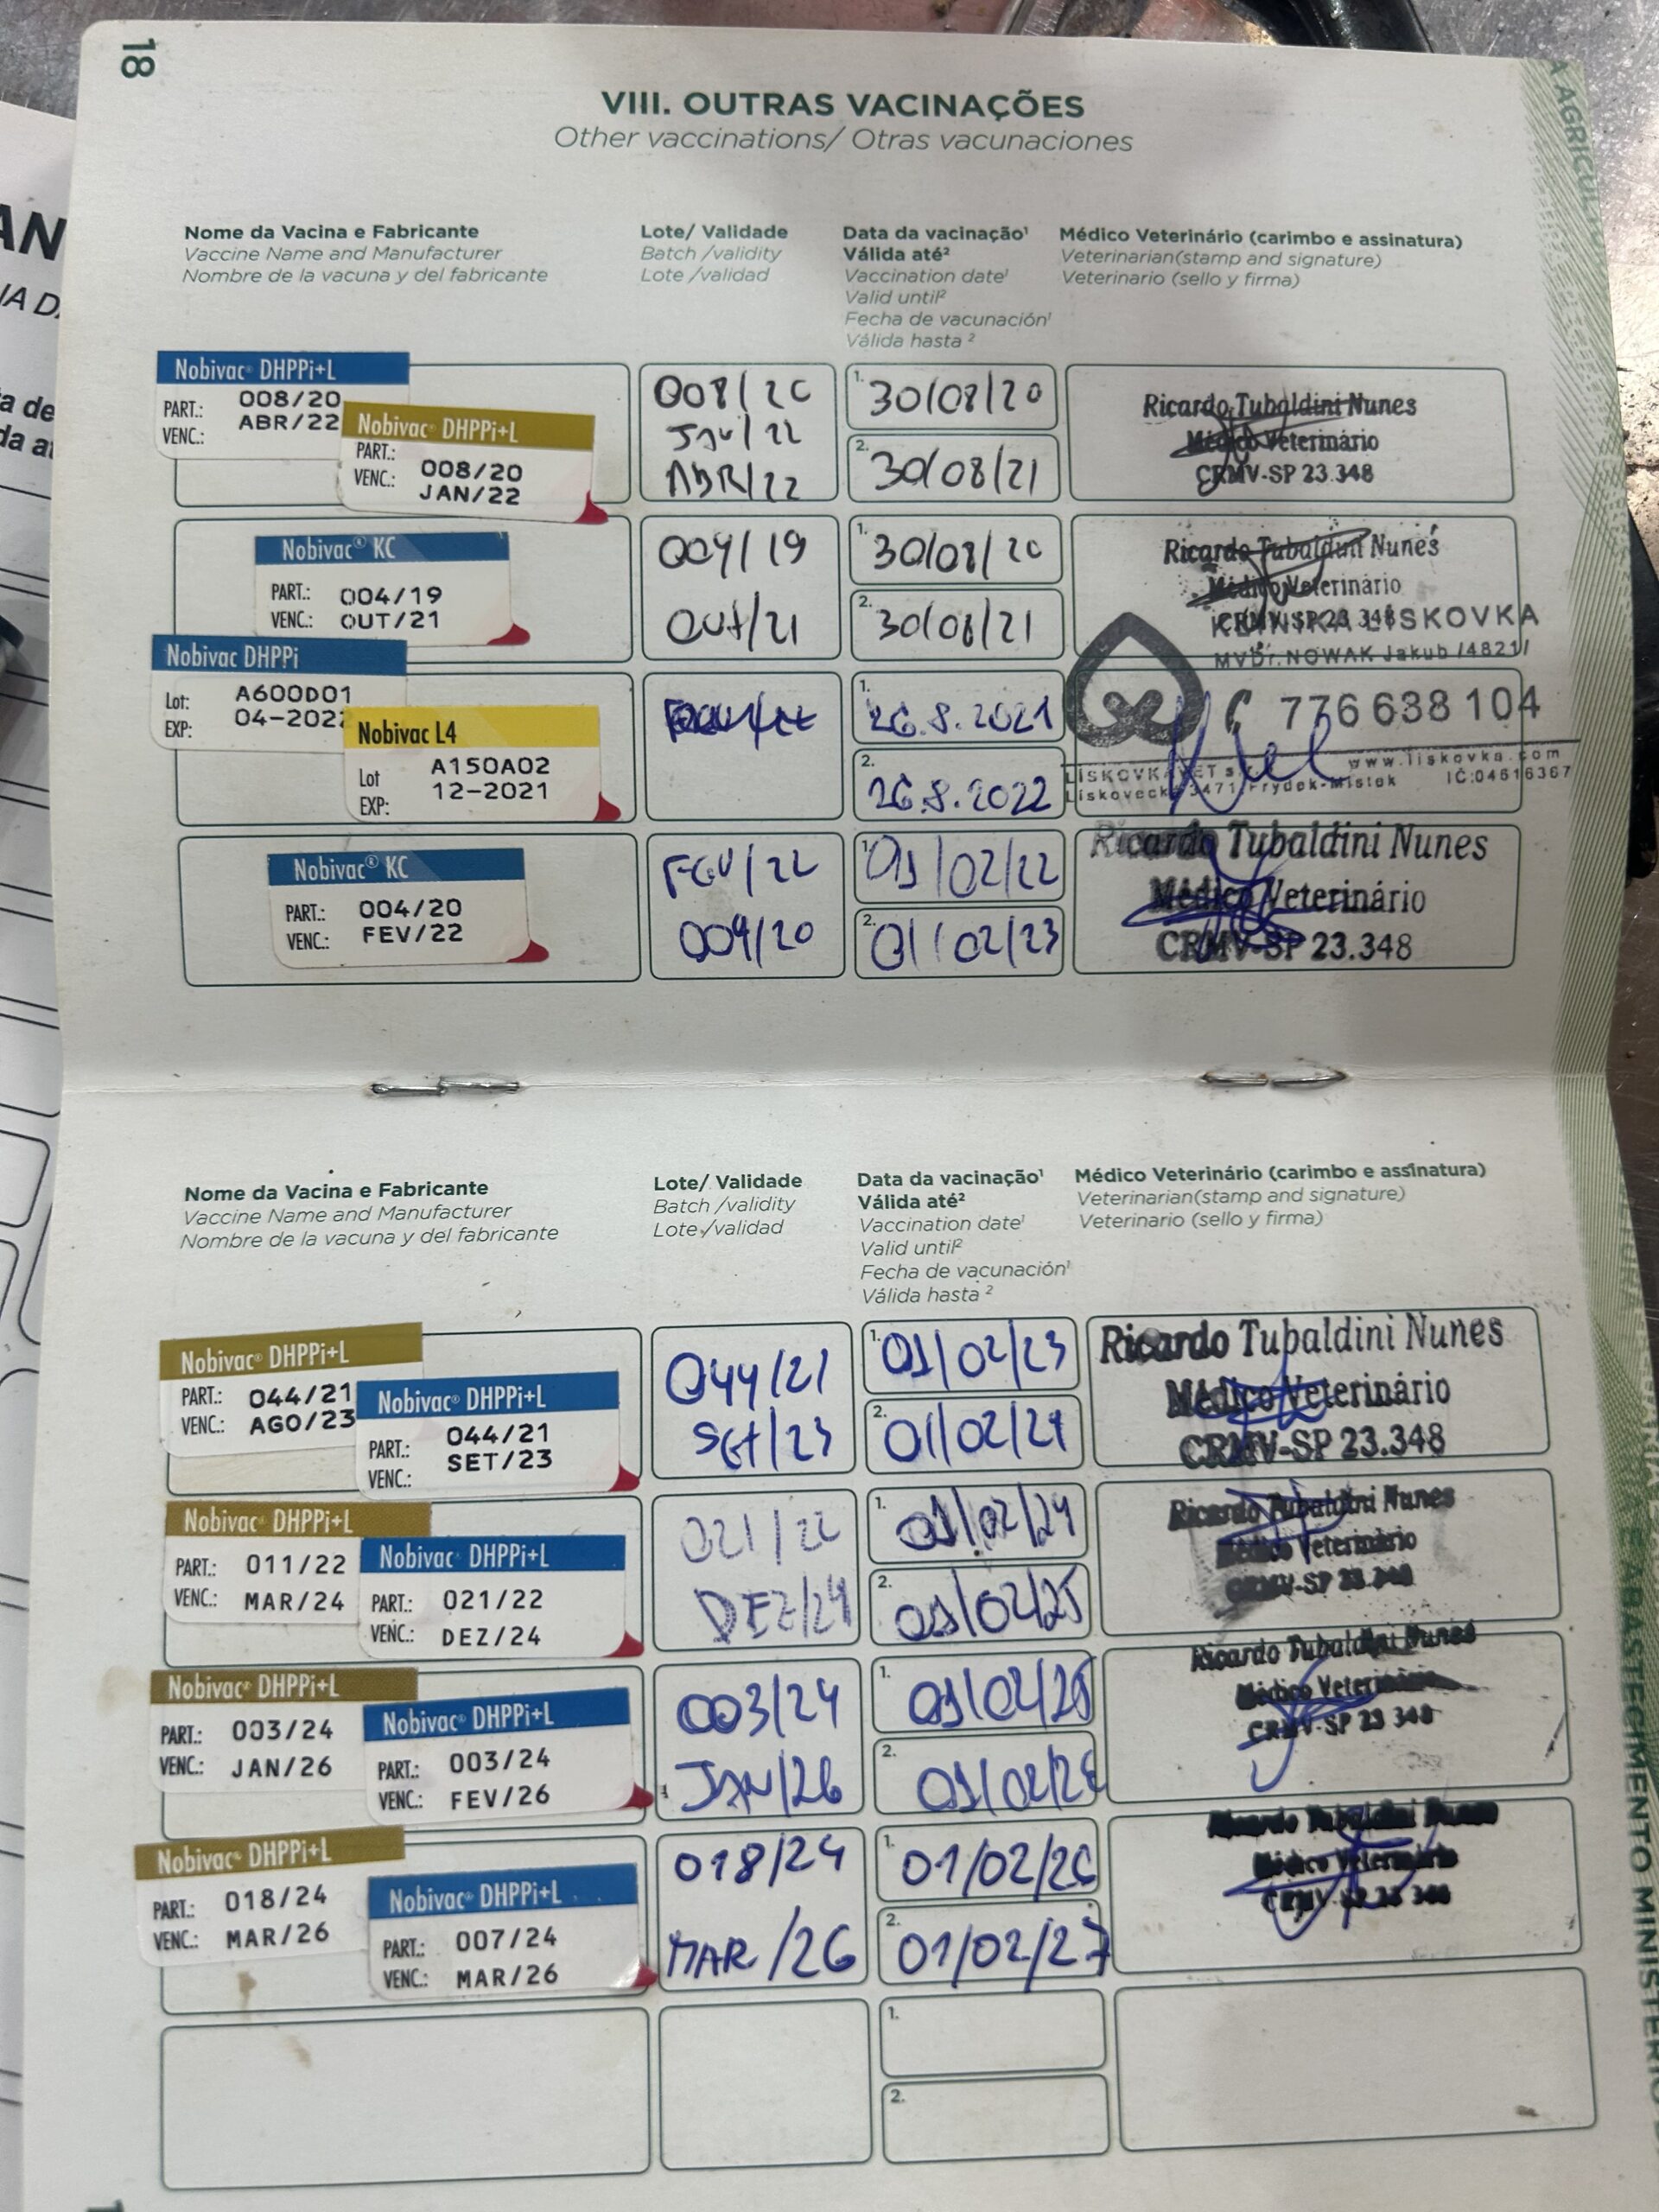 18
VIII. OUTRAS VACINAÇÕES
Other vaccinations/ Otras vacunaciones
Nome da Vacina e Fabricante
Vaccine Name and Manufacturer
Nombre de la vacuna y del fabricante
Lote/ Validade
Batch /validity
Lote /validad
Data da vacinação¹
Válida até²
Vaccination date¹
Valid until²
Fecha de vacunación¹
Válida hasta ²
Médico Veterinário (carimbo e assinatura)
Veterinarian(stamp and signature)
Veterinario (sello y firma)
Nobivac® DHPPi+L
PART.: 008/20
VENC.: ABR/22
Nobivac® DHPPi+L
PART.:
VENC.: 008/20
JAN/22
008/20
JAN/22
ABR/22
1. 30/08/20
2. 30/08/21
Ricardo Tubaldini Nunes
Médico Veterinário
CRMV-SP 23.348
Nobivac® KC
PART.: 004/19
VENC.: OUT/21
004/19
OUT/21
1. 30/08/20
2. 30/08/21
Ricardo Tubaldini Nunes
Médico Veterinário
CRMV-SP 23 348
Nobivac DHPPi
Lot: A600D01
EXP: 04-2022
Nobivac L4
Lot A150A02
EXP: 12-2021
1. 26.8.2021
2. 26.8.2022
KLINIKA LÍSKOVKA
MVDr. NOWAK Jakub /4821/
776 638 104
www.liskovka.com
LÍSKOVKA VET
Frýdek-Místek IČ:04616367
Nobivac® KC
PART.: 004/20
VENC.: FEV/22
FEV/22
004/20
1. 01/02/22
2. 01/02/23
Ricardo Tubaldini Nunes
Médico Veterinário
CRMV-SP 23.348
Nome da Vacina e Fabricante
Vaccine Name and Manufacturer
Nombre de la vacuna y del fabricante
Lote/ Validade
Batch /validity
Lote /validad
Data da vacinação¹
Válida até²
Vaccination date¹
Valid until²
Fecha de vacunación¹
Válida hasta ²
Médico Veterinário (carimbo e assinatura)
Veterinarian(stamp and signature)
Veterinario (sello y firma)
Nobivac® DHPPi+L
PART.: 044/21
VENC.: AGO/23
Nobivac® DHPPi+L
PART.: 044/21
VENC.: SET/23
044/21
SET/23
1. 01/02/23
2. 01/02/24
Ricardo Tubaldini Nunes
Médico Veterinário
CRMV-SP 23.348
Nobivac® DHPPi+L
PART.: 011/22
VENC.: MAR/24
Nobivac® DHPPi+L
PART.: 021/22
VENC.: DEZ/24
021/22
DEZ/24
1. 01/02/24
2. 01/02/25
Ricardo Tubaldini Nunes
Médico Veterinário
CRMV-SP 23.348
Nobivac® DHPPi+L
PART.: 003/24
VENC.: JAN/26
Nobivac® DHPPi+L
PART.: 003/24
VENC.: FEV/26
003/24
JAN/26
1. 01/02/25
2. 01/02/26
Ricardo Tubaldini Nunes
Médico Veterinário
CRMV-SP 23 348
Nobivac® DHPPi+L
PART.: 018/24
VENC.: MAR/26
Nobivac® DHPPi+L
PART.: 007/24
VENC.: MAR/26
018/24
MAR/26
1. 01/02/26
2. 01/02/27
Ricardo Tubaldini Nunes
Médico Veterinário
CRMV-SP 23 348
1.
2.